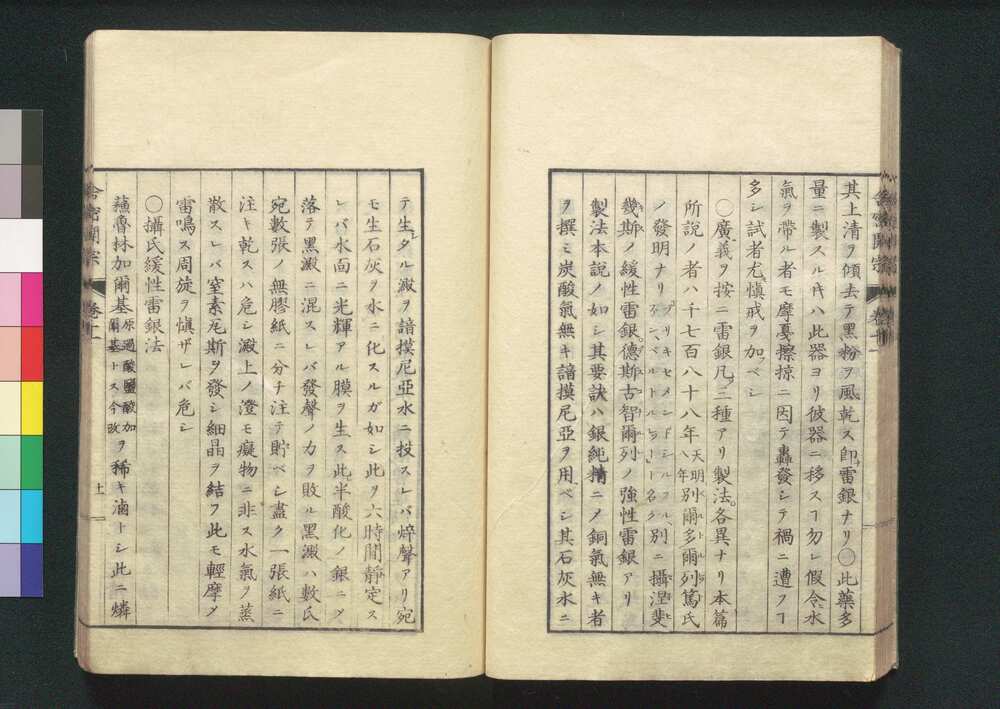 其上清ヲ傾去テ黒粉ヲ風乾ス即雷銀ナリ〇此藥多
量ニ製スル𪜈ハ此器ヨリ彼器ニ移スヿ勿レ假令水
氣ヲ帶ル者モ摩戞擦掠ニ因テ轟發シテ禍ニ遭フヿ
多シ試者尤愼戒ヲ加フベシ
〇廣義ヲ按ニ雷銀凡三種アリ製法各異ナリ本篇
所説ノ者ハ千七百八十八年天明八年別爾多爾列篤氏
ノ發明ナリ別ニ攝涅斐
幾斯ノ緩性雷銀德斯古智爾列ノ強性雷銀アリ
製法本説ノ如シ其要訣ハ銀純精ニメ銅氣無キ者
ヲ撰ミ炭酸氣無キ諳摸尼亞ヲ用ベシ其石灰水ニ
テ生レタル澱ヲ諳摸尼亞水ニ投スレバ焠聲アリ宛
モ生石灰ヲ水ニ化スルガ如シ此ヲ六時間靜定ス
レバ水面ニ光輝アル膜ヲ生ス此半酸化ノ銀ニメ
落テ黒澱ニ混スレバ發聲ノ力ヲ敗ル黒澱ハ數氏
宛數張ノ無膠紙ニ分チ注テ貯ベシ盡ク一張紙ニ
注キ乾スハ危シ澱上ノ澄モ癡物ニ非ス水氣ヲ蒸
散スレバ窒素瓦斯ヲ發シ細晶ヲ結フ此モ輕摩メ
雷鳴ス周旋ヲ愼ザレバ危シ
〇攝氏緩性雷銀法
蘓魯林加爾基原過酸鹽酸加爾基トス今改ヲ稀キ滷トシ此ニ燐
舎密開宗
卷十一
十一